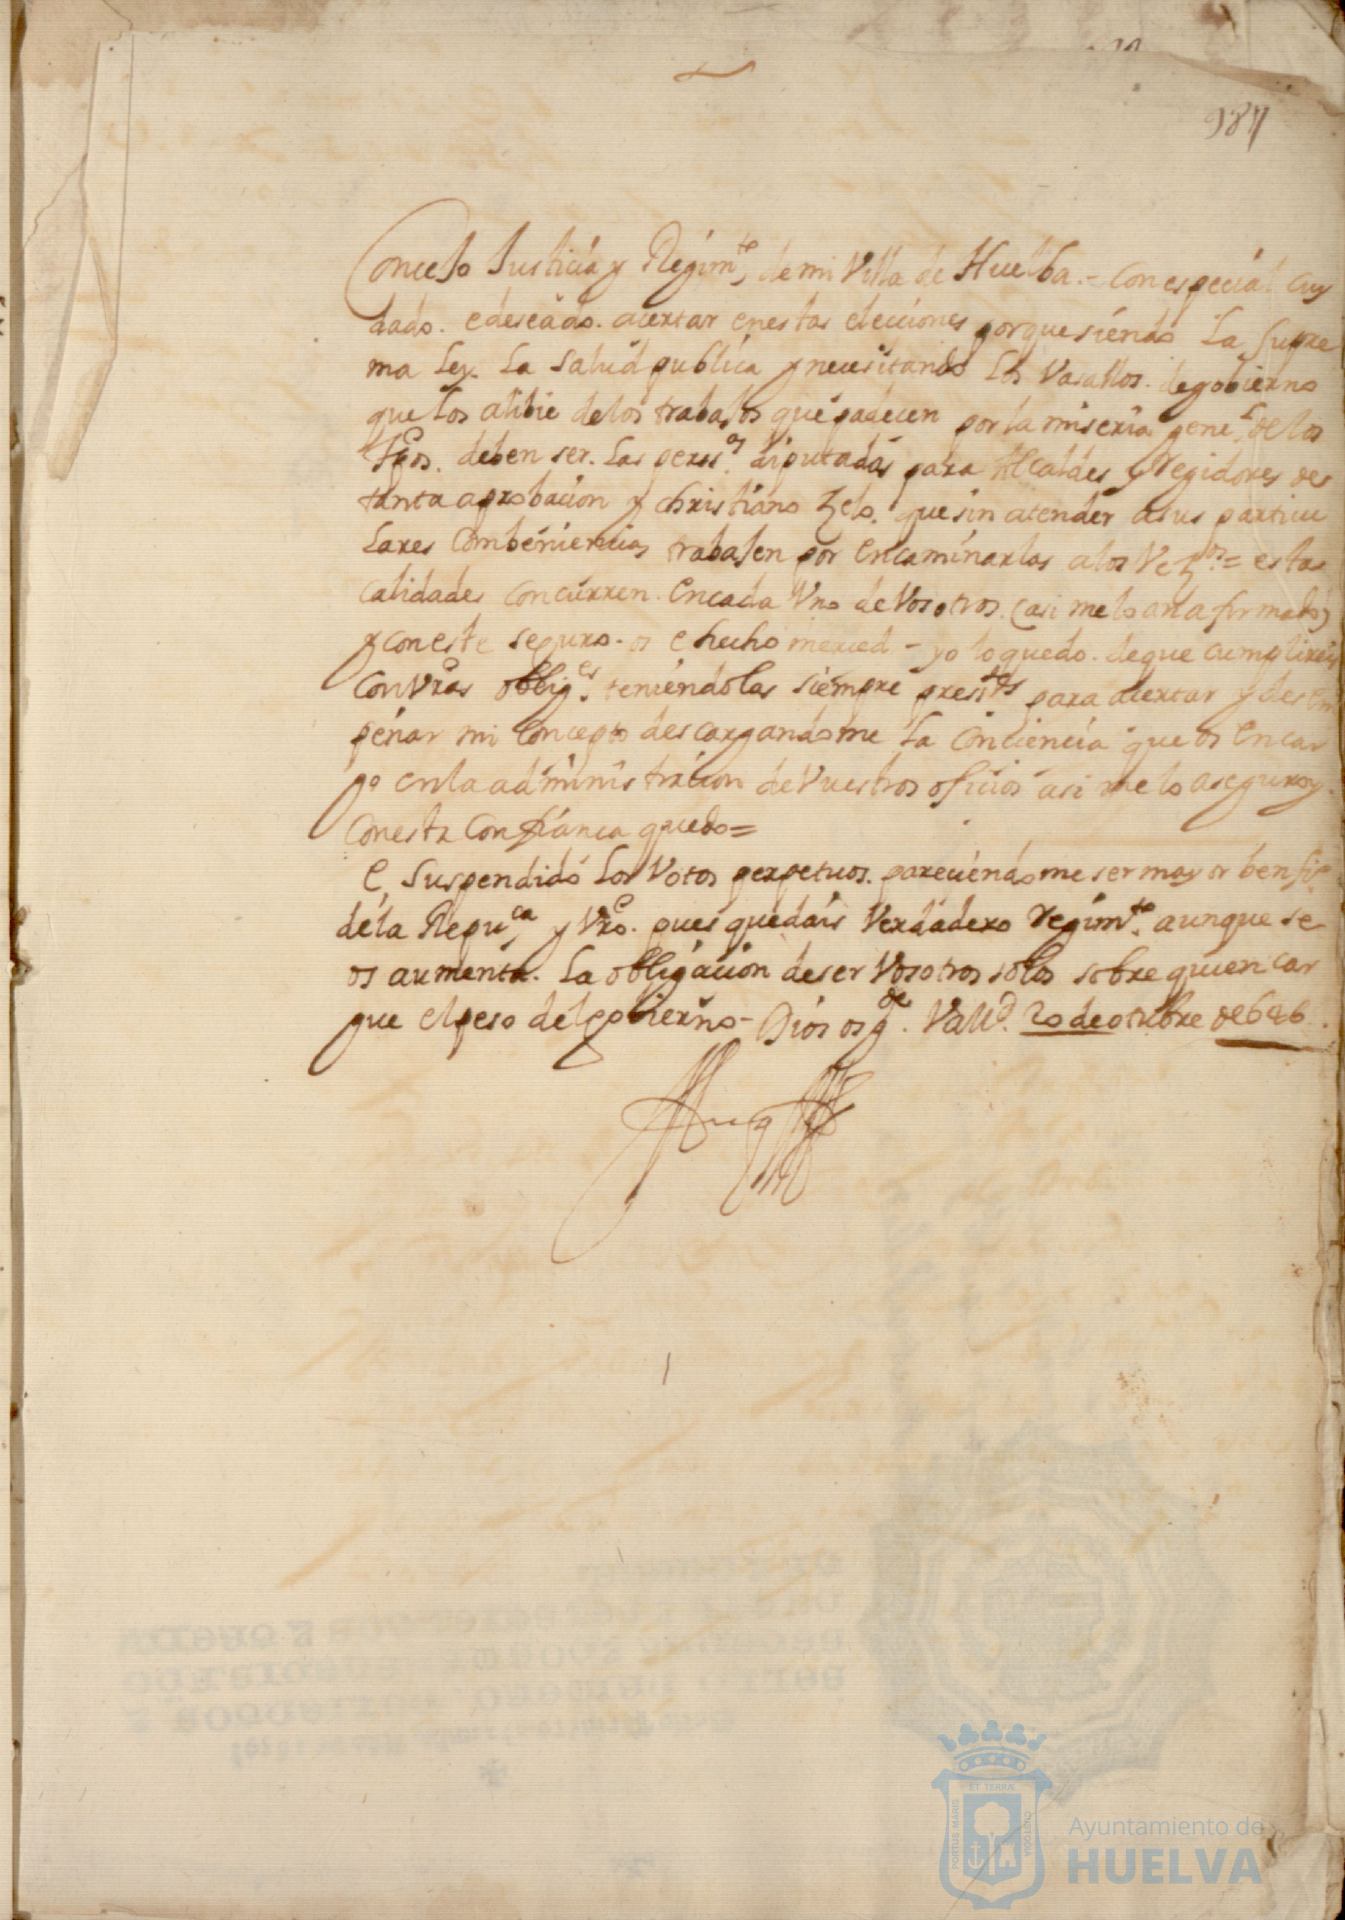 987
Concejo Justicia y Regim.to de mi Villa de Huelba.- con especial cuy
dado. e deseado. acertar en estas elecciones porque siendo La Supre
ma Ley. La Salud publica y necesitando Los Vasallos. de gobierno
que Los alibie de los trabajos que padecen por la miseria gene.l de los
tpos. deben ser. Las perss.as diputadas para Alcaldes y Regidores de
tanta aprobacion y christiano Zelo. que sin atender a sus particu
Lares Combeniencias trabajen por encaminarlas a los Vez.os = estas
calidades concurren. en cada Vno de Vosotros. (asi me lo an afirmado)
y con este seguro. os e hecho merced - yo lo quedo. de que cumplireis
con Vras oblig.es teniendolas siempre pres.tes para acertar y desem
peñar mi Concepto descargandome La Conciencia que os encar
go en la administracion de Vuestros oficios asi me lo aseguro y.
con esta Confianca quedo =
E Suspendido Los Votos perpetuos. pareciendome ser mayor benfi.o
de la Repu.ca y Vro. pues quedais Verdadero regim.to aunque se
os aumenta. La obligacion de ser Vosotros solos sobre quien car
gue el peso del gobierno - Dios os g.de Vall.d 20 de otubre de 646.
ET TERRÆ
PORTUS MARIS
CUSTODIA
Ayuntamiento de
HUELVA